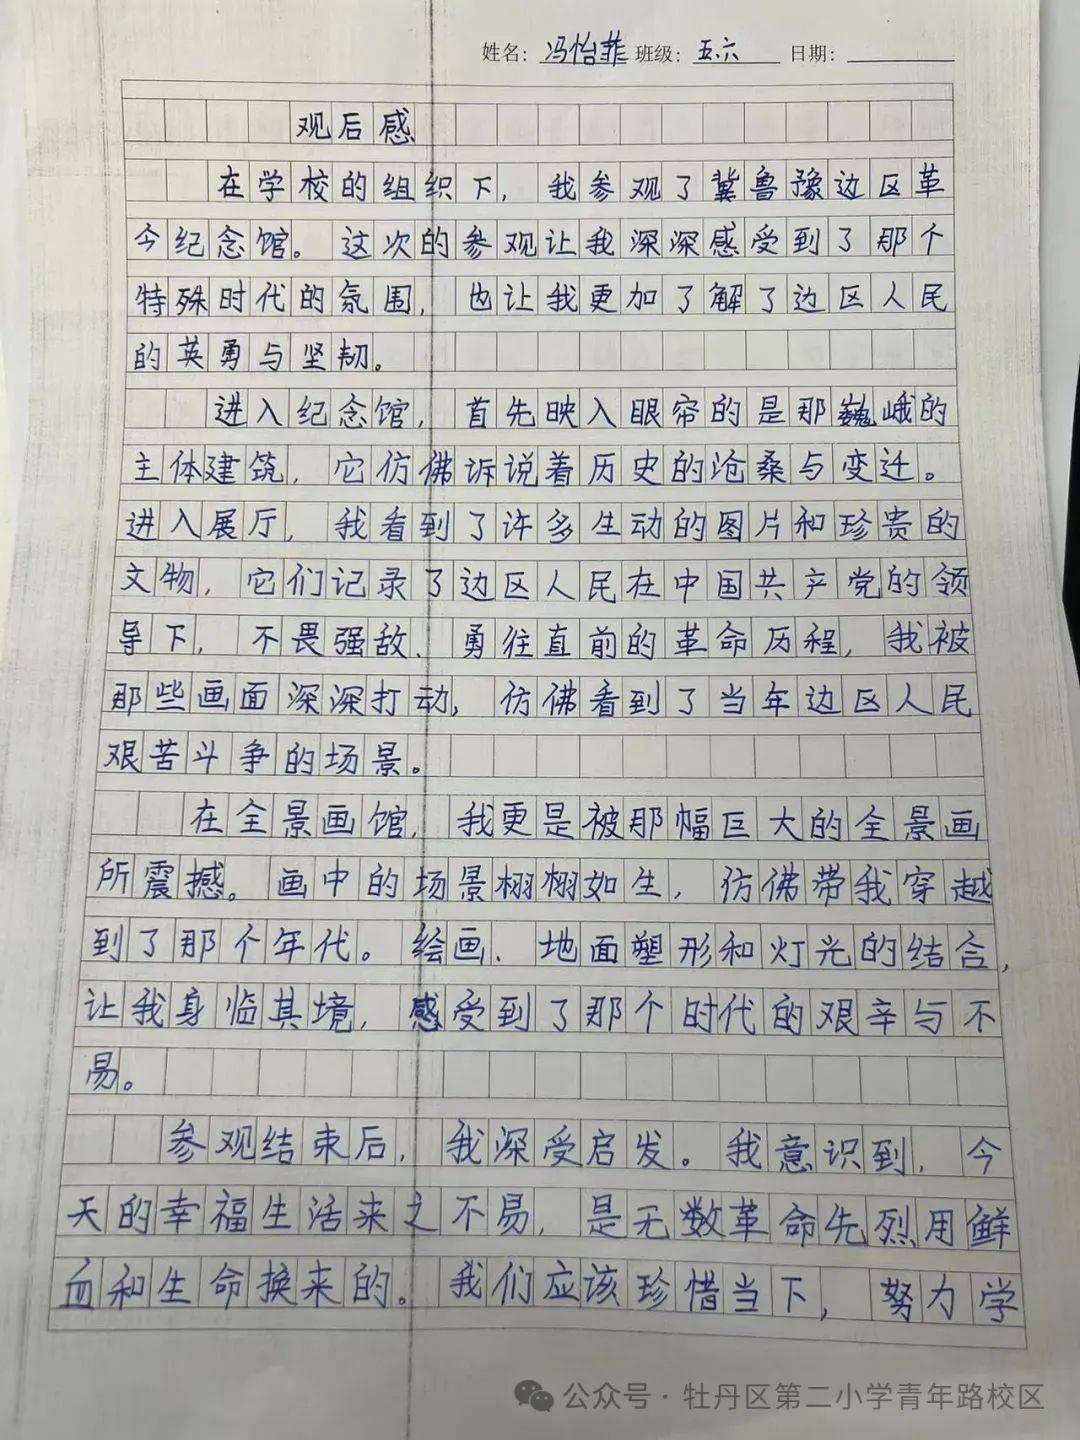 姓名：冯怡菲 班级：五.六 日期：
观后感
在学校的组织下，我参观了冀鲁豫边区革
今纪念馆。这次的参观让我深深感受到了那个
特殊时代的氛围，也让我更加了解了边区人民
的英勇与坚韧。
进入纪念馆，首先映入眼帘的是那巍峨的
主体建筑，它仿佛诉说着历史的沧桑与变迁。
进入展厅，我看到了许多生动的图片和珍贵的
文物，它们记录了边区人民在中国共产党的领
导下，不畏强敌、勇往直前的革命历程，我被
那些画面深深打动，仿佛看到了当年边区人民
艰苦斗争的场景。
在全景画馆，我更是被那幅巨大的全景画
所震撼。画中的场景栩栩如生，仿佛带我穿越
到了那个年代。绘画、地面塑形和灯光的结合，
让我身临其境，感受到了那个时代的艰辛与不
易。
参观结束后，我深受启发。我意识到，今
天的幸福生活来之不易，是无数革命先烈用鲜
血和生命换来的。我们应该珍惜当下，努力学
公众号·牡丹区第二小学青年路校区